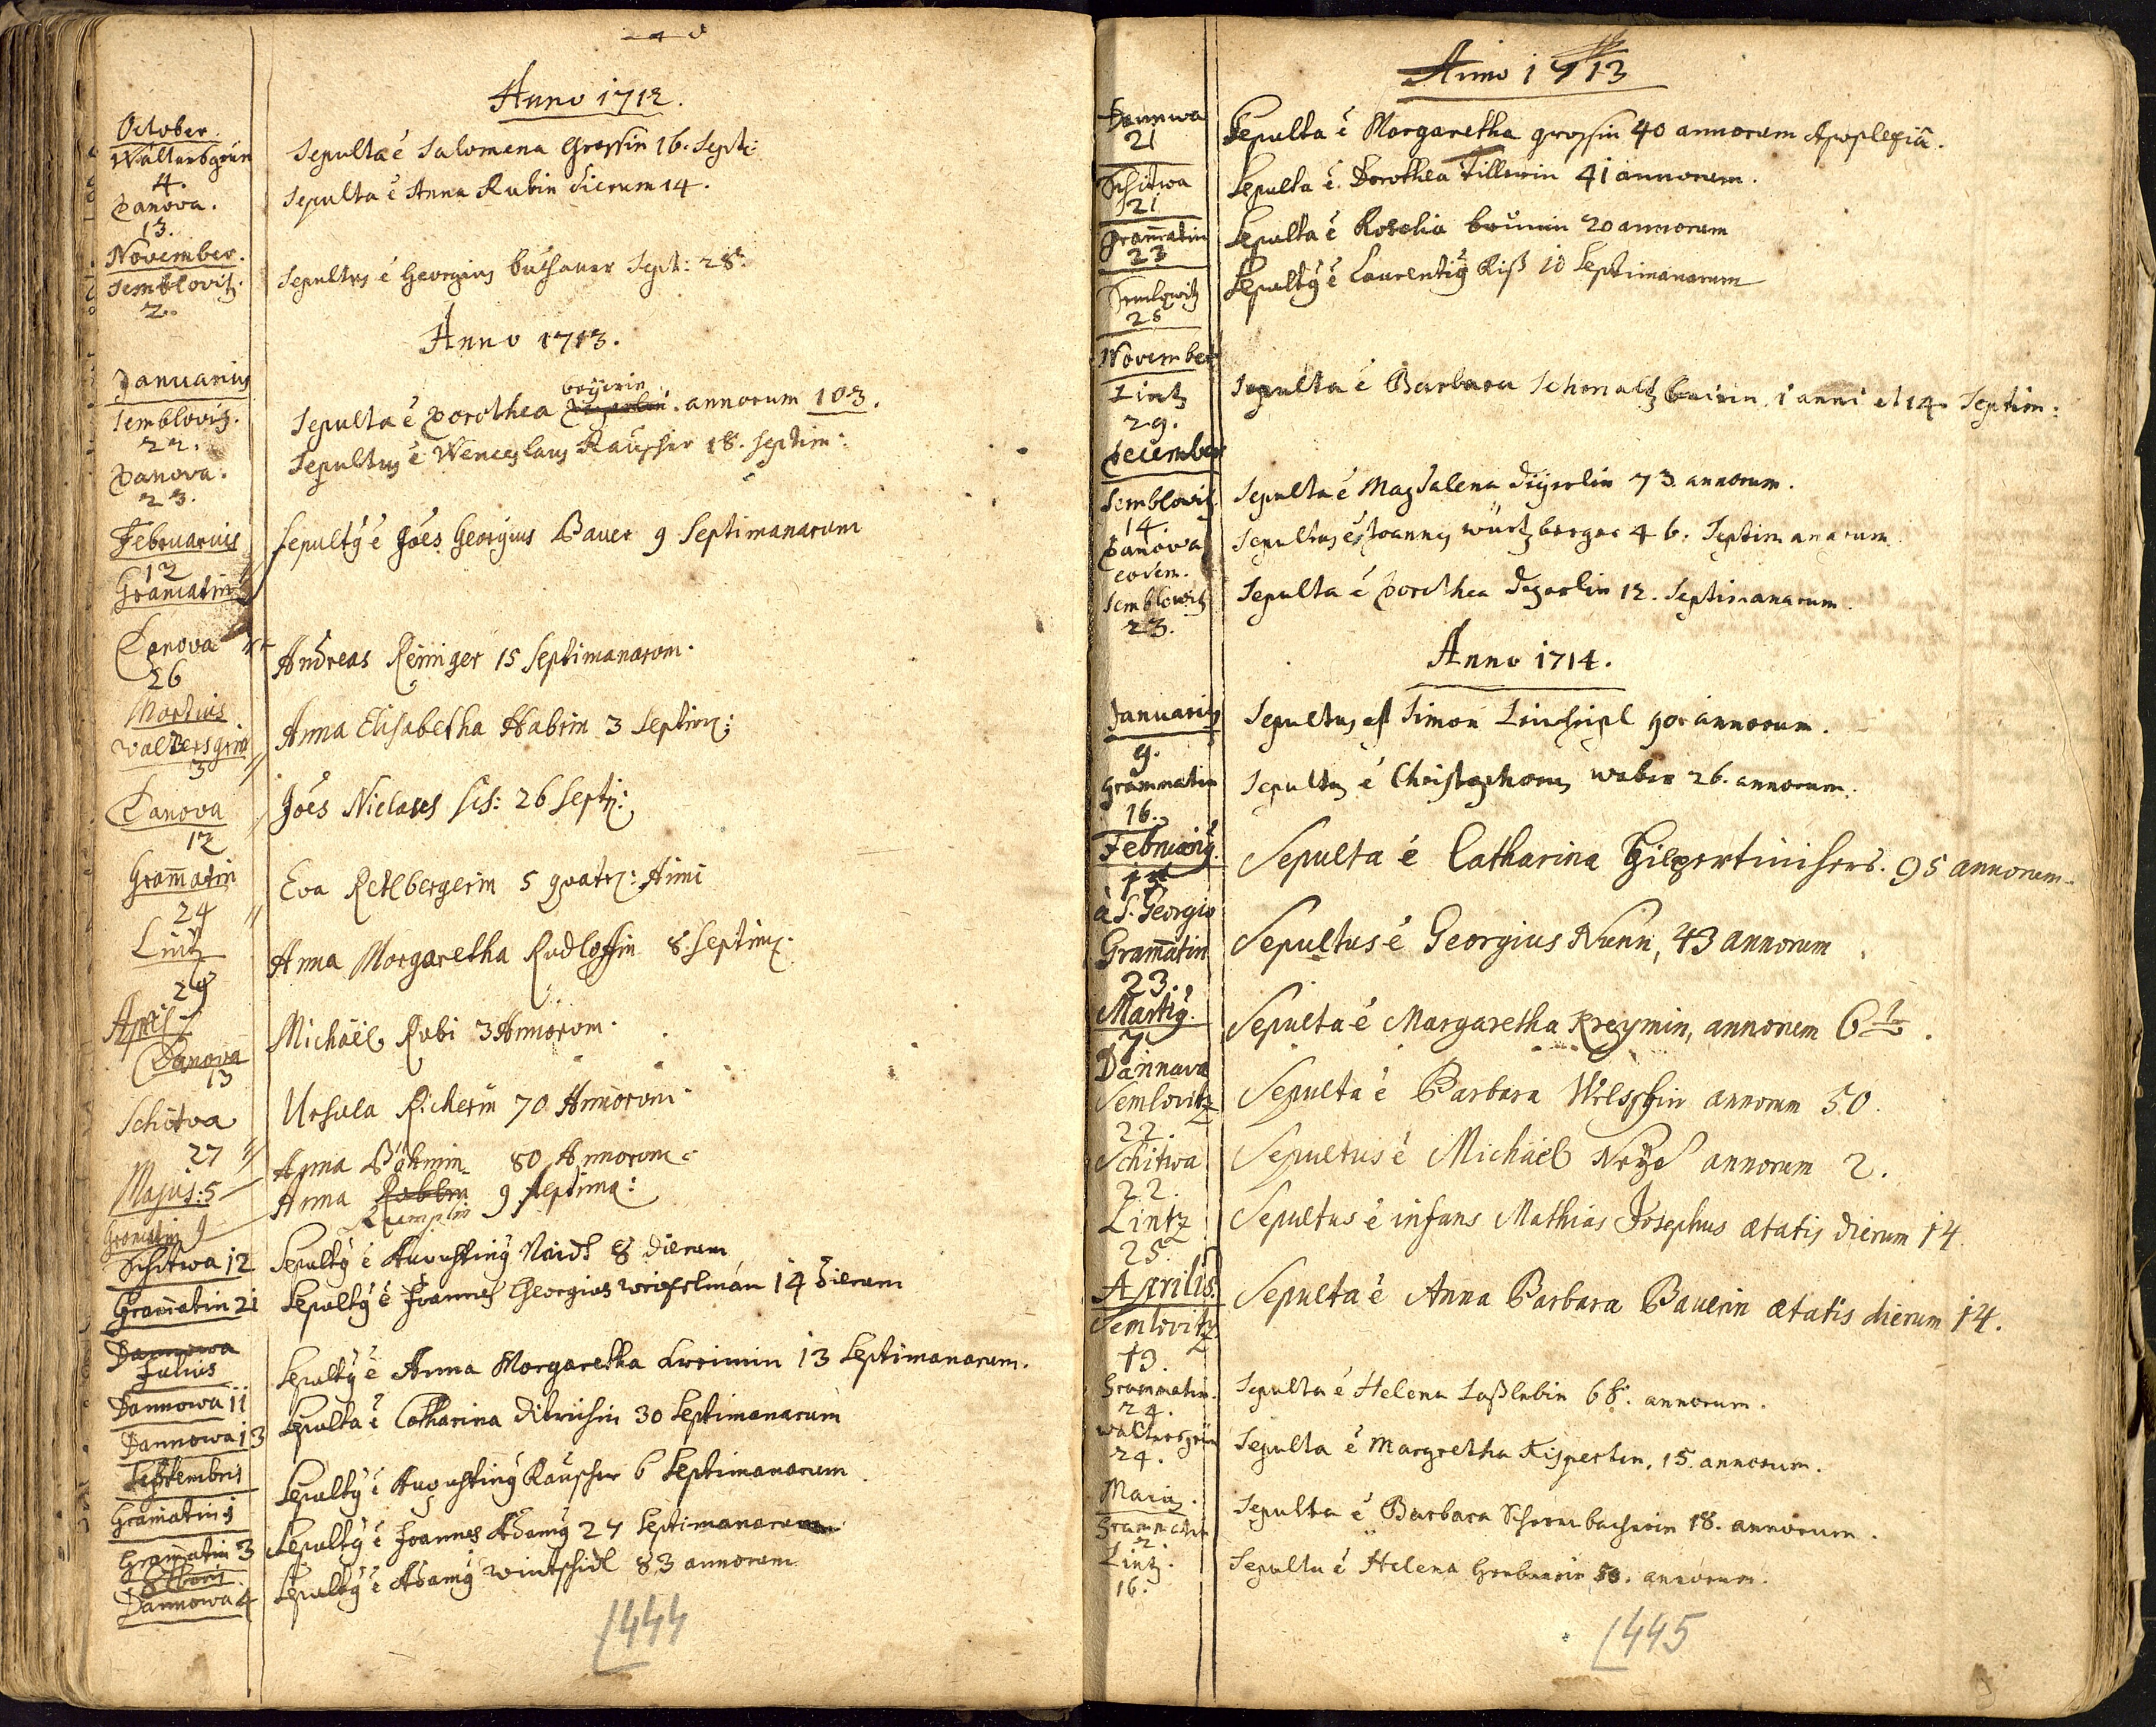 Anno 1712.
October.
Waltersgrün
4.
Sepulta é Salomena Grossin 16. Sept:
Danova.
13.
Sepulta é Anna Rubin dierum 14.
November.
Semblovitz.
2.
Sepultus é Georgius buchauer Sept: 28.
Anno 1713.
Januarius
Semblovitz.
22.
Sepulta é Dorothea annorum 103.
Danova.
23.
Sepultus é Wenceslaus Rauscher 18. septim:
Februarius
12
Gramatin
Sepultus é Joes Georgius Bauer 9 Septimanarum
Danova
26
Andreas Reininger 15 Septimanarum.
Martius
Valtersgrin
3
Anna Elisabetha Habrin 3 Septim:
Danova
12
Joes Niclases 26 Sept:
Gramatin
24
Eva Retlbergerin 5 quatr: Anni
Lintz
29
Anna Morgaretha Rudloffin 8. Septim:
April
Danova
13
Michael Rubi 3 Annorum.
Schitva
27
Ursula Richerin 70 Annorum
Majus: 5
Anna Böhmin 80 Annorum
Gramatin 9
Anna Rumplin 9 septima:
Schitwa 12
Sepultus é Augustinus Naidl 8 dierum
Gramatin 21
Sepultus é Joannes Georgius 14 dierum
Dannowa
Julius
Dannowa 11
Sepultus é Anna Morgaretha 13 Septimanarum.
Dannowa 13
Sepulta é Catharina 30 Septimanarum
Septembris
Gramatin 1
Sepultus é Augustinus Rauscher 6 Septimanarum
Gramatin 3
Sepultus é Joannes Adamus 27 Septimanarum
8bris
Dannowa 4
Sepultus é Adamus wintschidl 83 annorum
444
Anno 1713
Dannwa
21
Sepulta é Morgaretha grossin 40 annorum Apoplexiâ.
Schitwa
21
Sepulta é Dorothea Tillerin 41 annorum.
Gramatin
23
Sepulta é Rosalia 20 annorum
Semlowitz
26
Sepultus é Laurentius Kiß 10 Septimanarum
November
Lintz
29.
Sepulta é Barbara Schmaltz 1 anni et 14 Septim:
December
Semblovitz
14.
Sepulta é Magdalena 73 annorum.
Danowa
eodem.
Sepultus é Joannes würtzberger 46. Septimanarum
Semblowitz
23.
Sepulta é Dorothea 12. Septimanarum.
Anno 1714.
Januarius
9.
Sepultus est Simon 90 annorum.
Grammatin
16.
Sepultus é Christophorus weber 26. annorum.
Februarius.
à S. Georgio
Sepulta é Catharina 95 annorum
Gramatin
23.
Sepultus é Georgius Nunn, 43 annorum
Martius.
7
Dannava
Sepulta é Margaretha Kreymin, annorum 6
Semlovitz
22.
Sepulta é Barbara Welsschin annorum 50.
Schitwa
22.
Sepultus é Michäel annorum 2.
Lintz
25.
Sepultus é infans Mathias Josephus ætatis dierum 14
Aprilis.
Semlovitz
13.
Sepulta é Anna Barbara Bauerin ætatis dierum 14.
Grammatin.
24.
Sepulta é Helena 68. annorum.
Waltersgrün
24.
Sepulta é Margretha Kispertin, 15. annorum.
Maius.
Grammatin
2.
Sepulta é Barbara 18. annorum.
Lintz.
16.
Sepulta é Helena annorum.
445